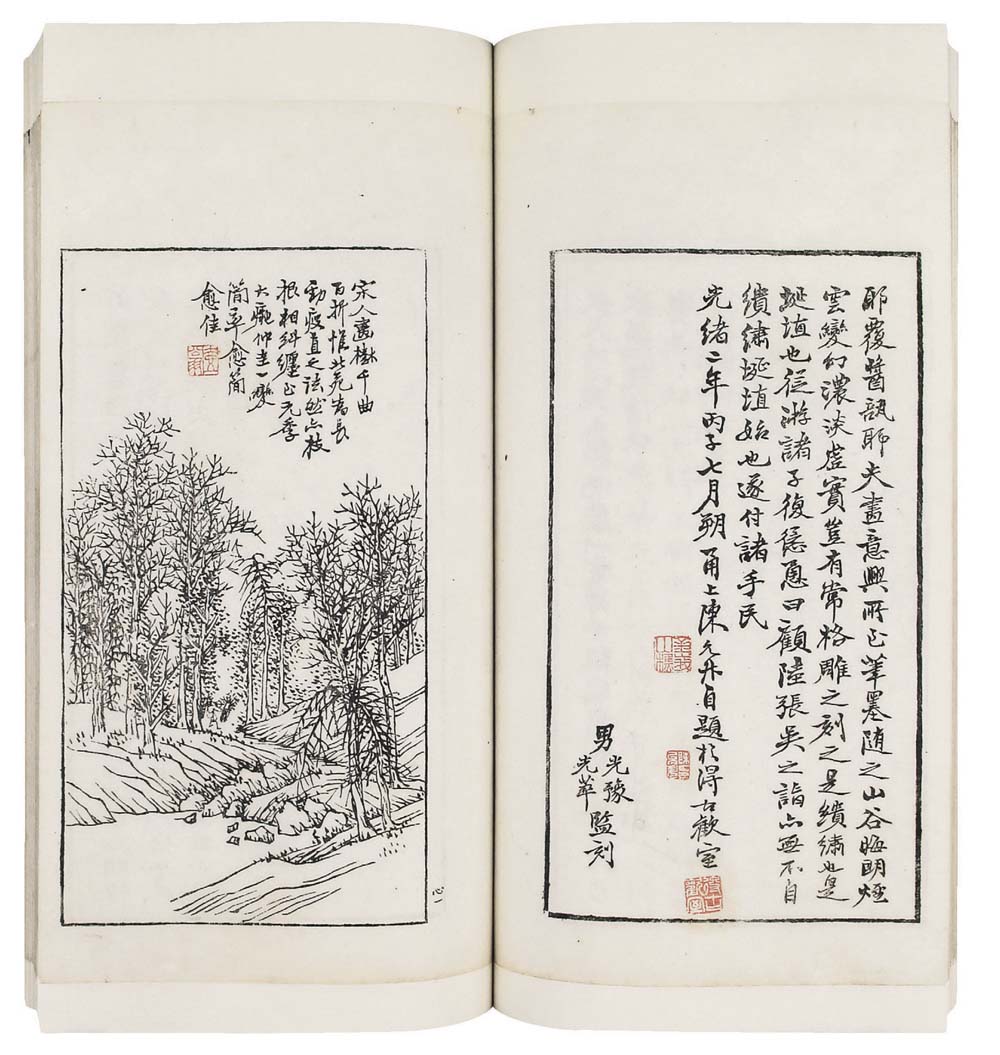 耶覆醬瓿耶夫畫意興所至筆墨隨之山谷晦明煙
雲變幻濃淡虛實豈有常格雕之刻之是繢繡也是
埏埴也從游諸子復慫恿曰顧陸張吳之詣亦無不自
繢繡埏埴始也遂付諸手民
光緒二年丙子七月朔甬上陳允升自題於得古歡室
男光豫光華監刻
宋人畫樹千曲
百折惟北苑為長
勁瘦直之法然亦枝
根相糾纏至元季
大癡仲圭一變
簡率愈簡
愈佳
心一